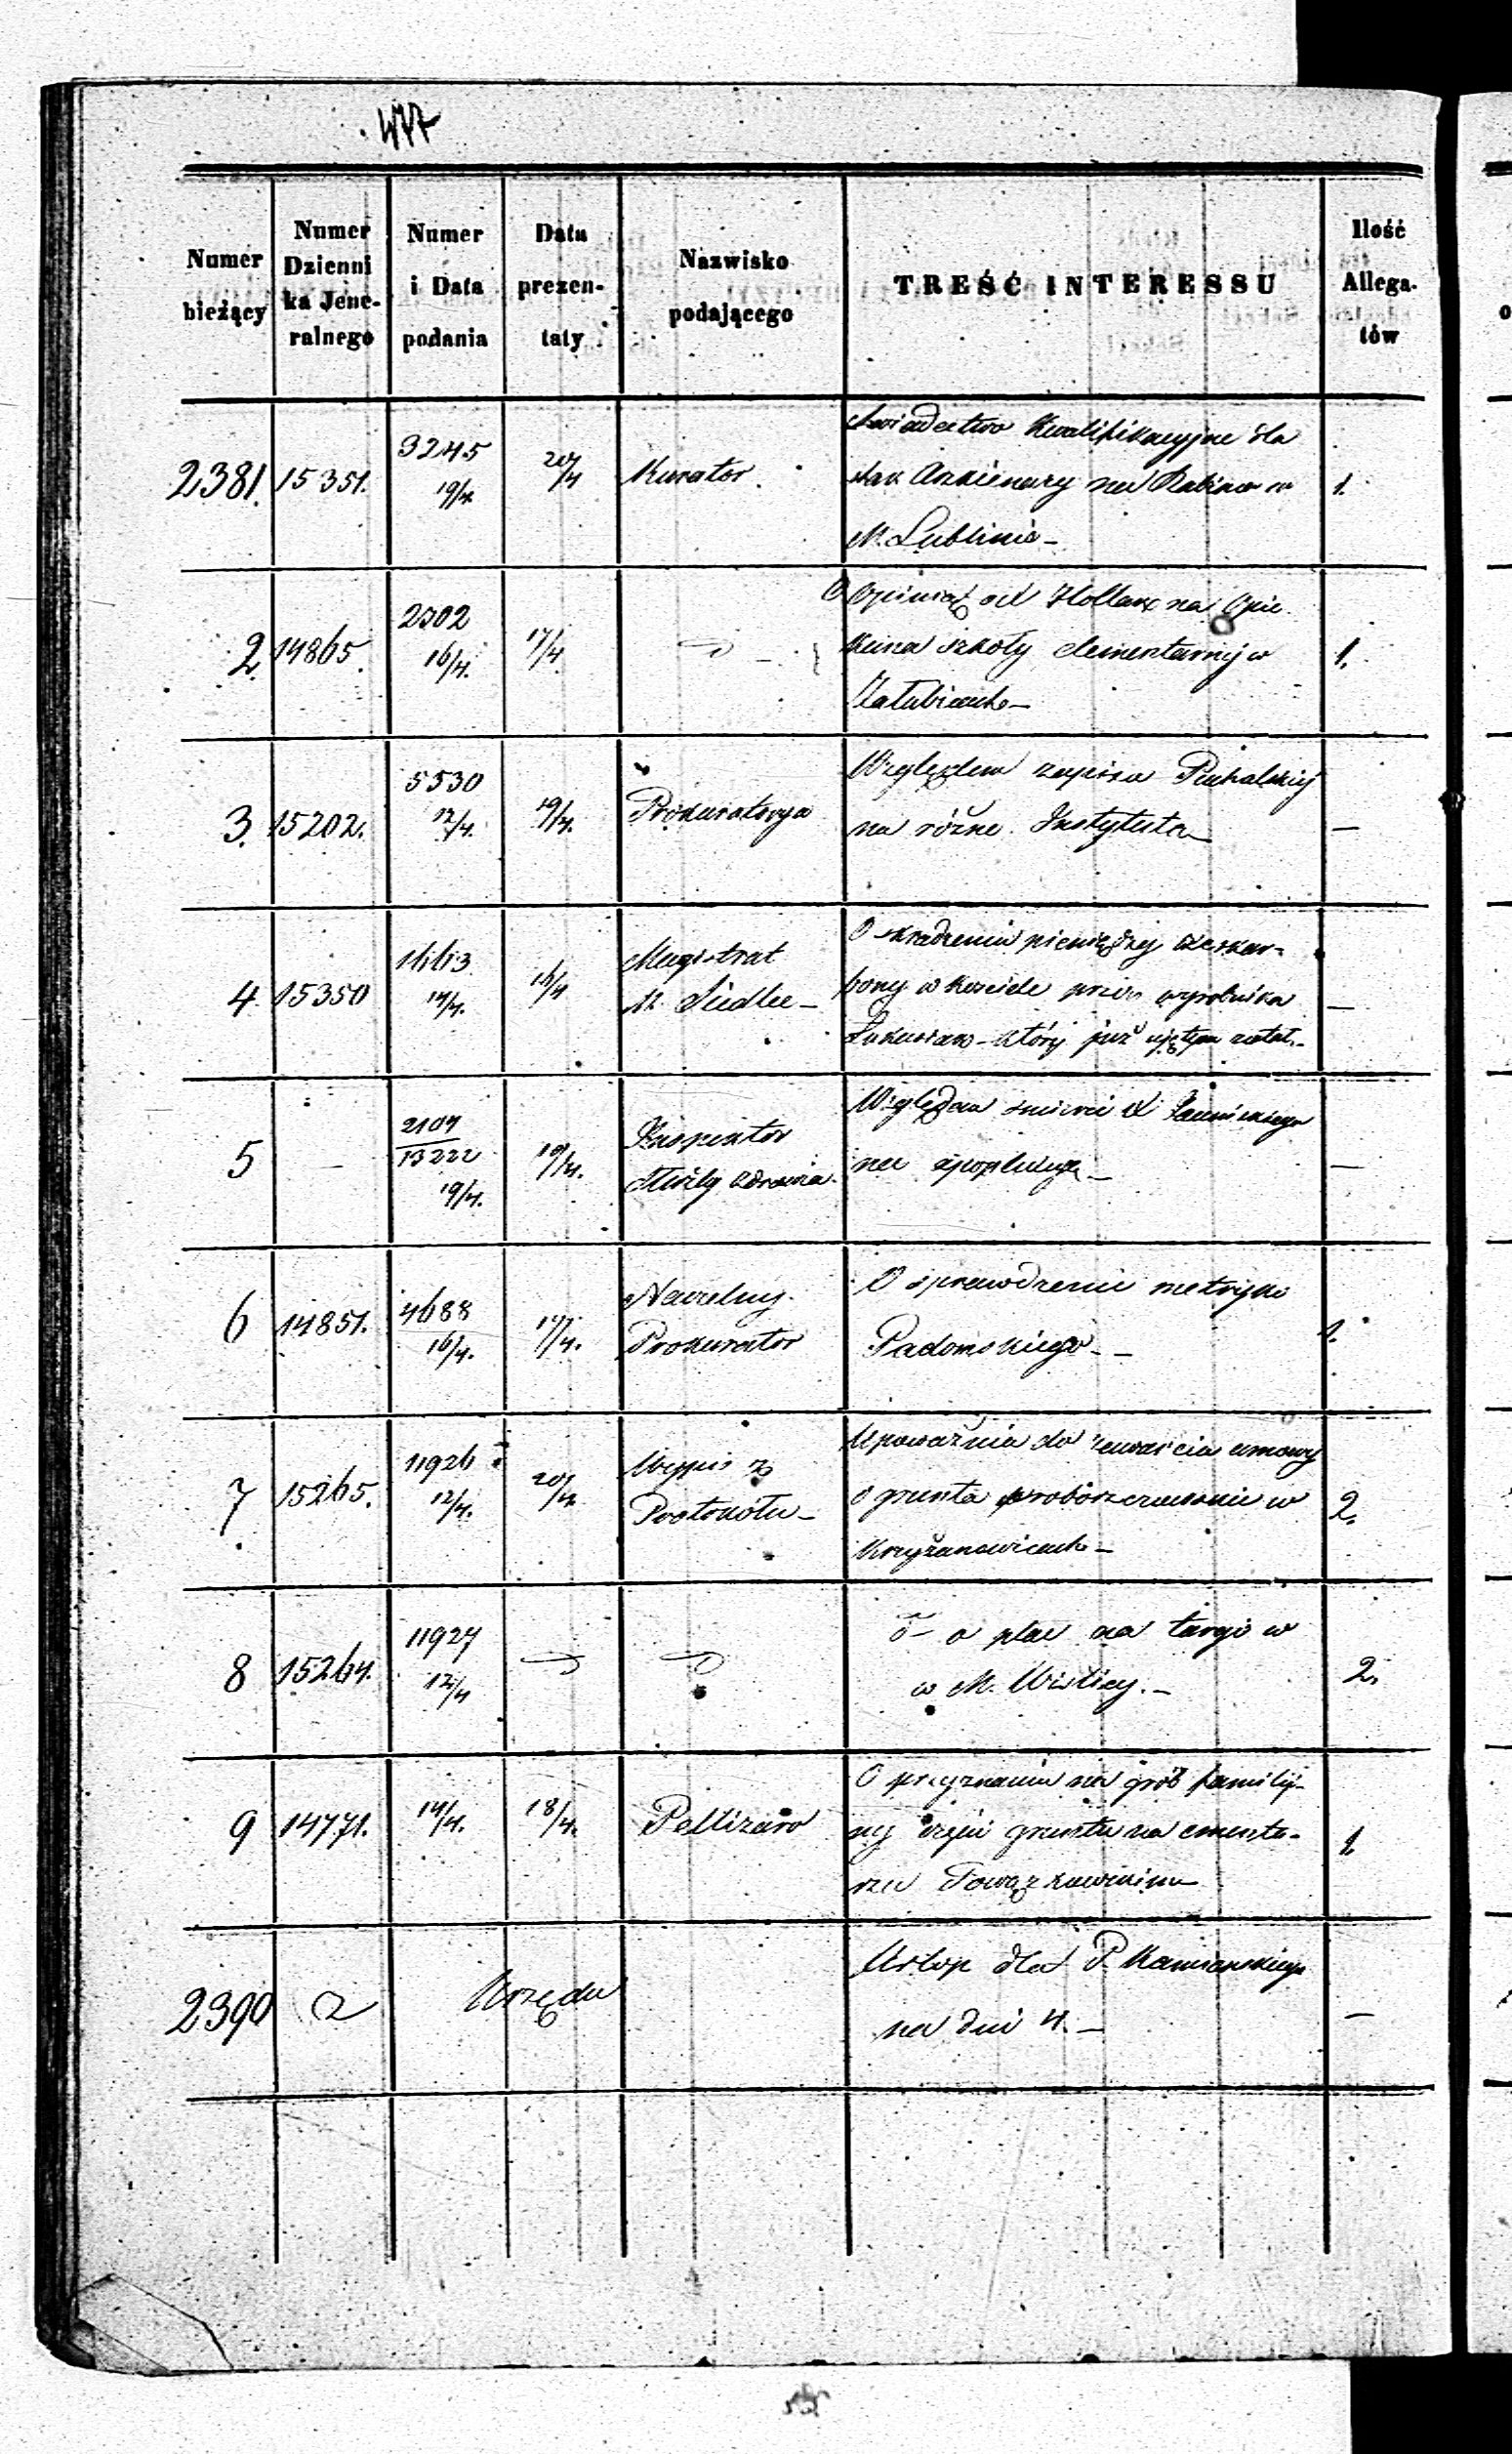 477
Numer bieżący
Numer Dzienni ka Jene- ralnego
Numer i Data podania
Data prezen- taty
Nazwisko podającego
TREŚĆ INTERESSU
Ilość Allega- tów
2381. 15351. 3245 19/4. 20/4 Kurator. Świadectwo Kwalifikacyjne dla 1.
na Rabina w
M. Lublinie –
2. 14865. 2302 16/4. 17/4 O Opinią od na Opie
kuna szkoły elementarnej w 1.
Załubicach –
3. 15202. 5530 12/4. 19/4. Prokuratorya Względem zapisu Puchalskiej
na różne Instytuta – –
4. 15350 1663 14/4. 16/4 Magistrat M. Siedlec – O skradzeniu pieniędzy ze skar-
bony w kosciele przez wyrobnika –
który już ujętym został. –
5 – 2107 13222 19/4. 19/4. Inspektor Służby Zdrowia. Względem śmierci X
na apoplexyą – –
6 14851. 4688 16/4. 17/4. Naczelny Prokurator O sprawdzenie metryki
Radomskiego – – 1.
7 15265. 11926 12/4. 20/4 Wypis z Protokołu – Upoważnia do zawarcia umowy
o grunta proboszczowskie w 2.
Krzyżanowicach –
8 15264. 11927 12/4 o plac na targi w
w M. Wiślicy. – 2.
9 14771. 14/4. 18/4. Pellizaro O przyznaniu na grób familij-
ny części gruntu na cmenta- 1.
rzu Powązkowskim
2390 Z Urzędu Urlop dla P.
na dni 4. – –